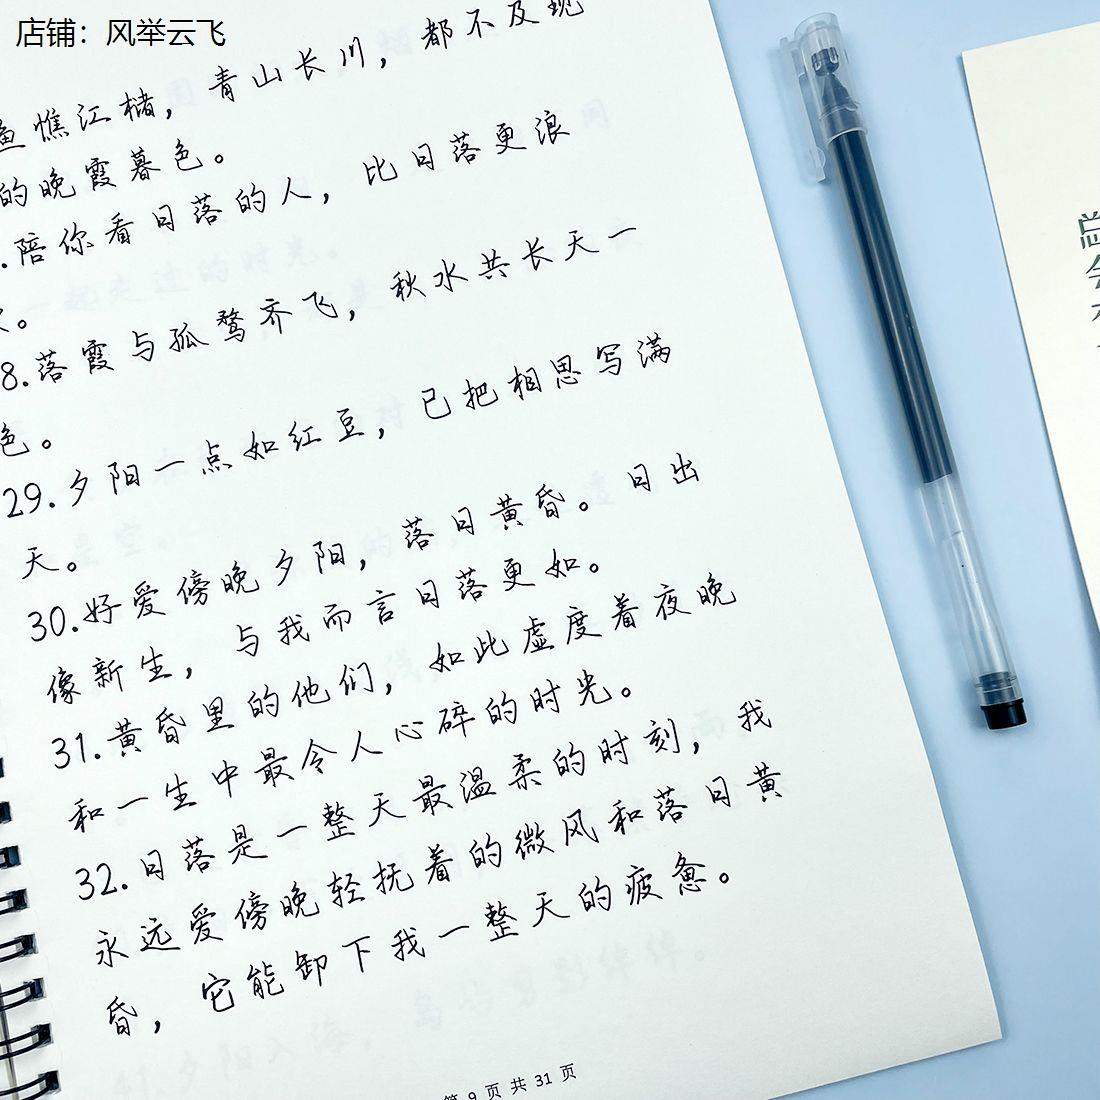 店铺：风举云飞
都不及现
鱼憔江槠，青山长川，
的晚霞暮色。
.陪你看日落的人，比日落更浪
。
8.落霞与孤鹜齐飞，秋水共长天一
色。
29.夕阳一点如红豆，已把相思写满
天。
30.好爱傍晚夕阳，落日黄昏。日出
像新生，与我而言日落更如。
31.黄昏里的他们，如此虚度着夜晚
和一生中最令人心碎的时光。
32.日落是一整天最温柔的时刻，我
永远爱傍晚轻抚着的微风和落日黄
昏，它能卸下我一整天的疲惫。
第 9 页 共 31 页
总
会